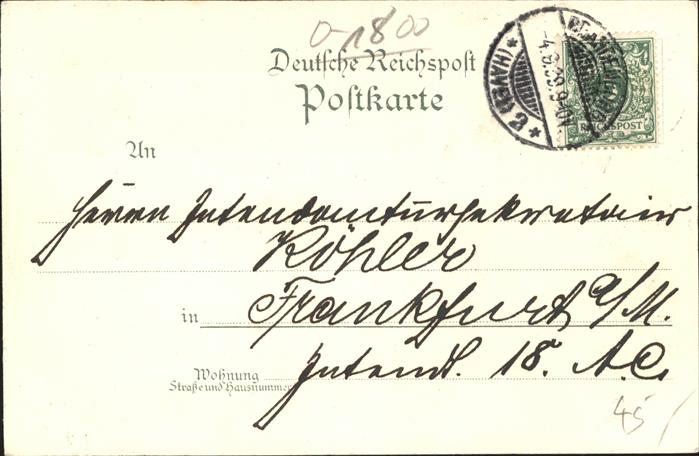 0-1800
Deutsche Reichspost
Postkarte
BRANDENBURG
(HAVEL)
* 2 *
REICHSPOST
An
Herrn Intendantursekretair
Köhler
in Frankfurt a/M.
Wohnung Intend. 18. A.C.
Straße und Hausnummer
45